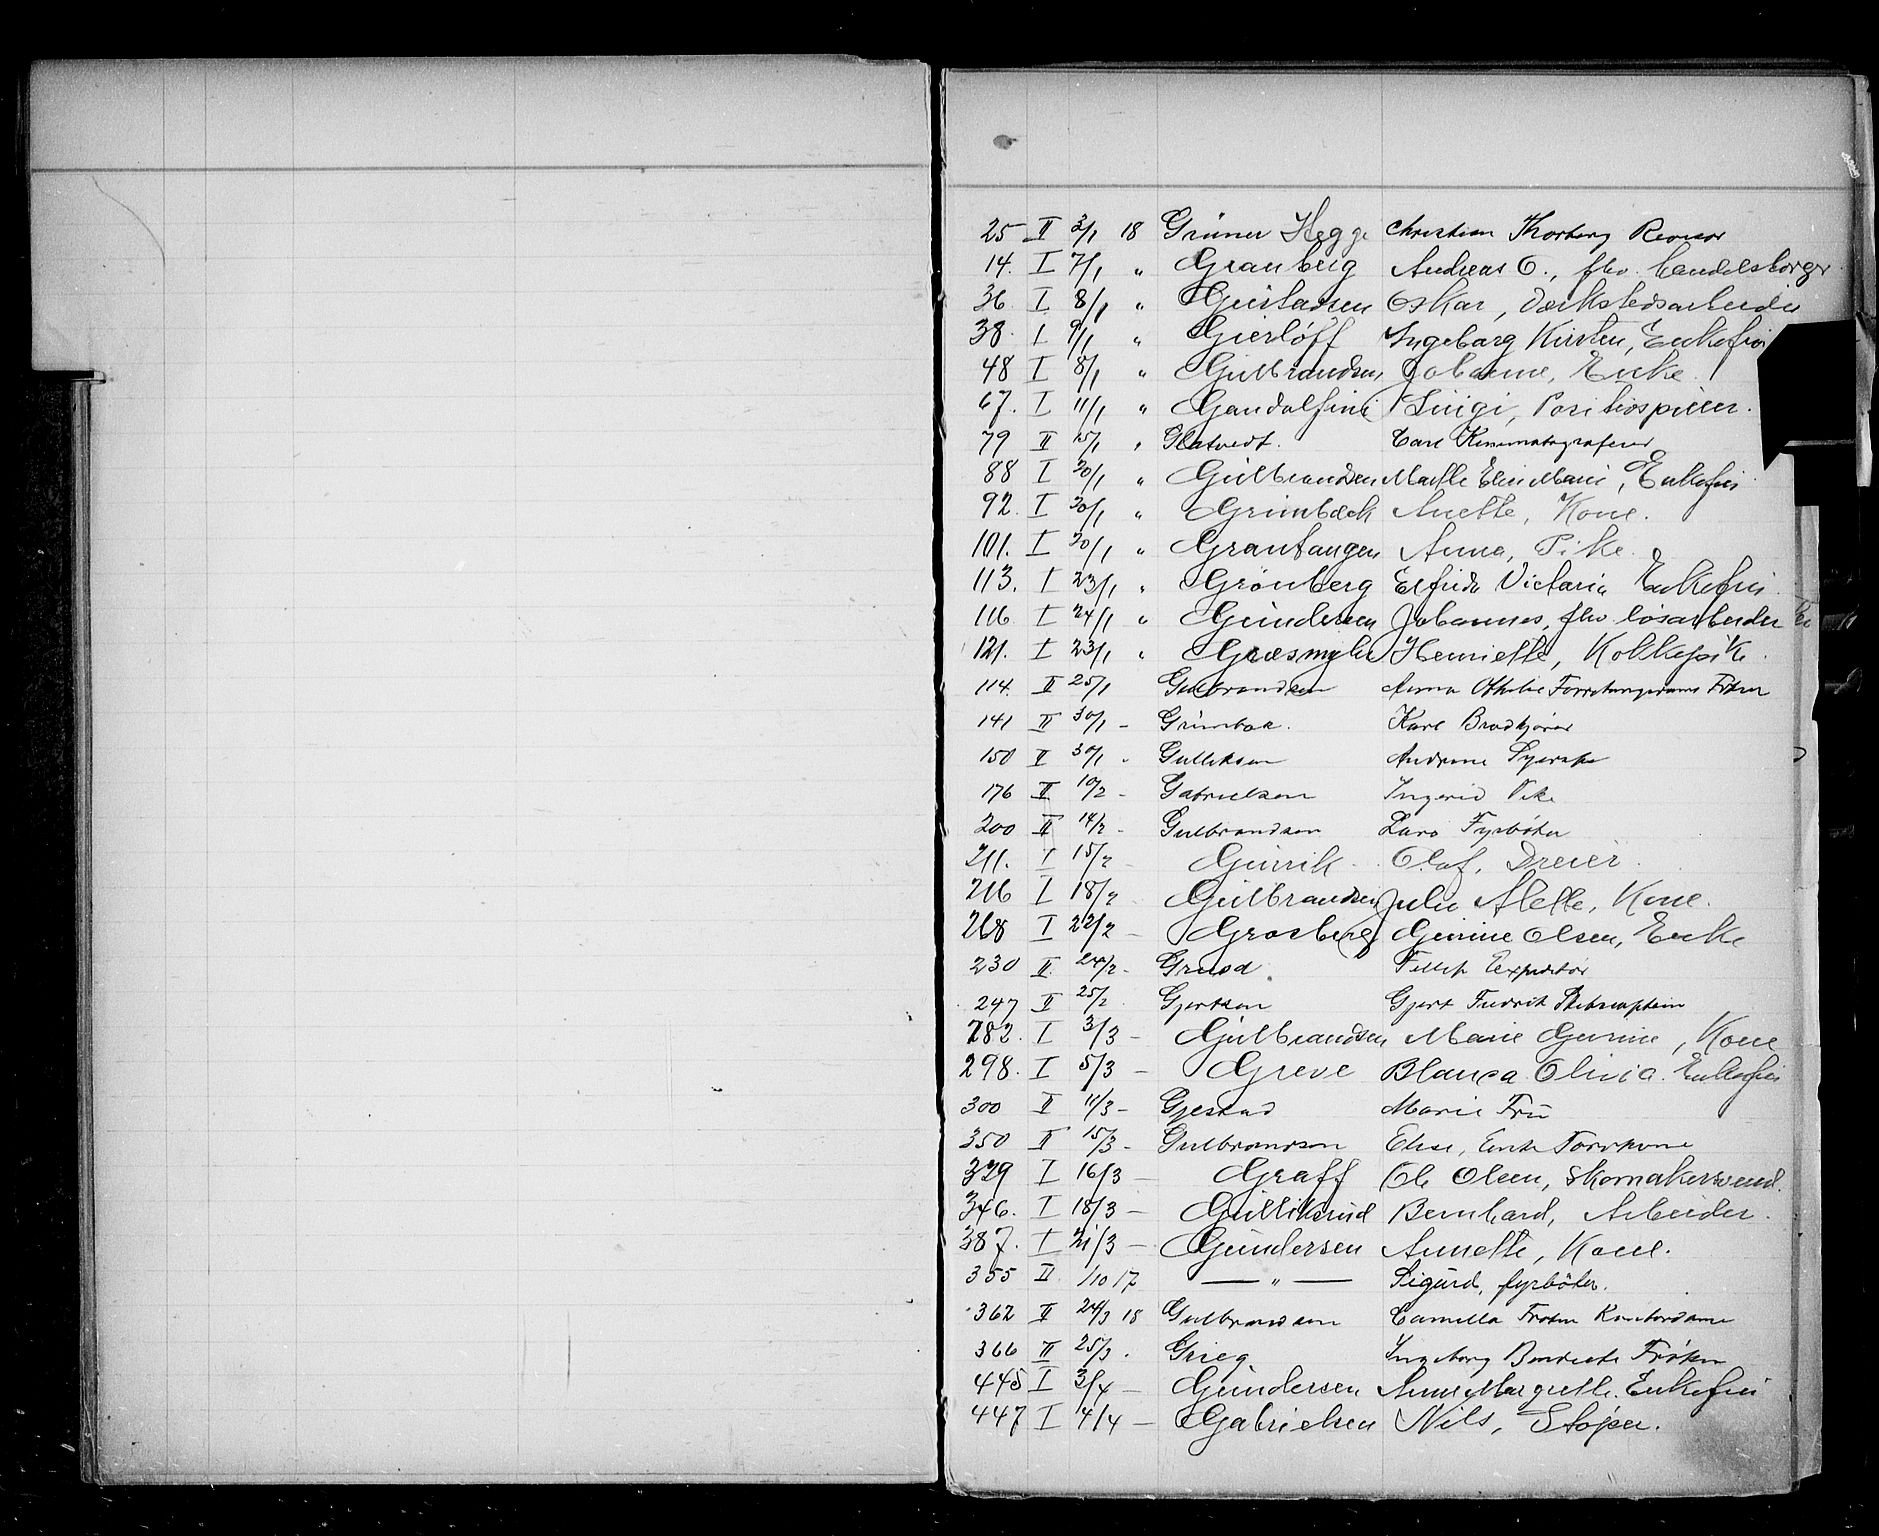 25 II 3/1 18 Grüner Hegge Christian Thorberg Revisor
14. I 7/1 " Granberg Andreas O., fhv. handelsborger
36 I 8/1 " Gustavsen Oskar, Værkstedsarbeider
38. I 9/1 " Gierløff Ingeborg Kirsten, Enkefru
48 I 8/1 " Gulbrandsen, Johanne, Enke.
67. I 11/1 " Gandolfini Luigi, Positivspiller.
79 II 15/1 " Glatvedt. Carl Kinematografeier
88 I 20/1 " Gulbrandsen Marthe Elin Marie, Enkefru
92. I 20/1 " Grimbæck Anette, Kone.
101. I 20/1 " Grantangen Anna, Pike.
113. I 23/1 " Grönberg Elfrida Victoria Enkefru.
116 I 24/1 " Gundersen Johannes, fhv. løsarbeider
121. I 23/1 " Græsmyhr Henriette, Kokkepike.
114. II 25/1 Gulbrandsen Anna Othilie Forretningsdame Frøken
141 II 30/1 - Grümbak. Karl Brødkjører
150 II 30/1 - Gulliksen Andrine Syerske
176 II 10/2 - Gabrielsen Ingerid Pike
200 II 14/2 - Gulbrandsen Lars Fyrbøter
211. I 15/2 - Gunrik Olaf, Dreier.
216 I 18/2 - Gulbrandsen Julie Alette, Kone.
268 I 22/2 - Grosberg Gunine Olsen, Enke
230 II 24/2 - Grusd. Fillip Expeditør
247 II 25/2 Gjertsen Gjert Fredrik Skibscaptein
282. I 3/3 - Gulbrandsen Marie Gurine, Kone
298. I 5/3 - Greve Blanca Olivia. Enkefru
300 II 11/3 - Gjestad Marie Fru
350 II 15/3 - Gulbrandsen Elise, Enke Torvkone
329 I 16/3 - Graff Ole Olsen, Skomakersvend.
346. I 18/3 - Gulliksrud Bernhard, Arbeider.
387. I 21/3 - Gundersen Annette, Kone.
355 II 1/10 17 — " — Sigurd, fyrbøter.
362 II 24/3 18 Gulbrandsen Camilla Frøken Kontordame
366 II 25/3. Grieg Ingeborg Benedicte Frøken
445 I 3/4 - Gundersen Anne Margrethe. Enkefru
447 I 4/4 - Gabrielsen Nils, Støper.